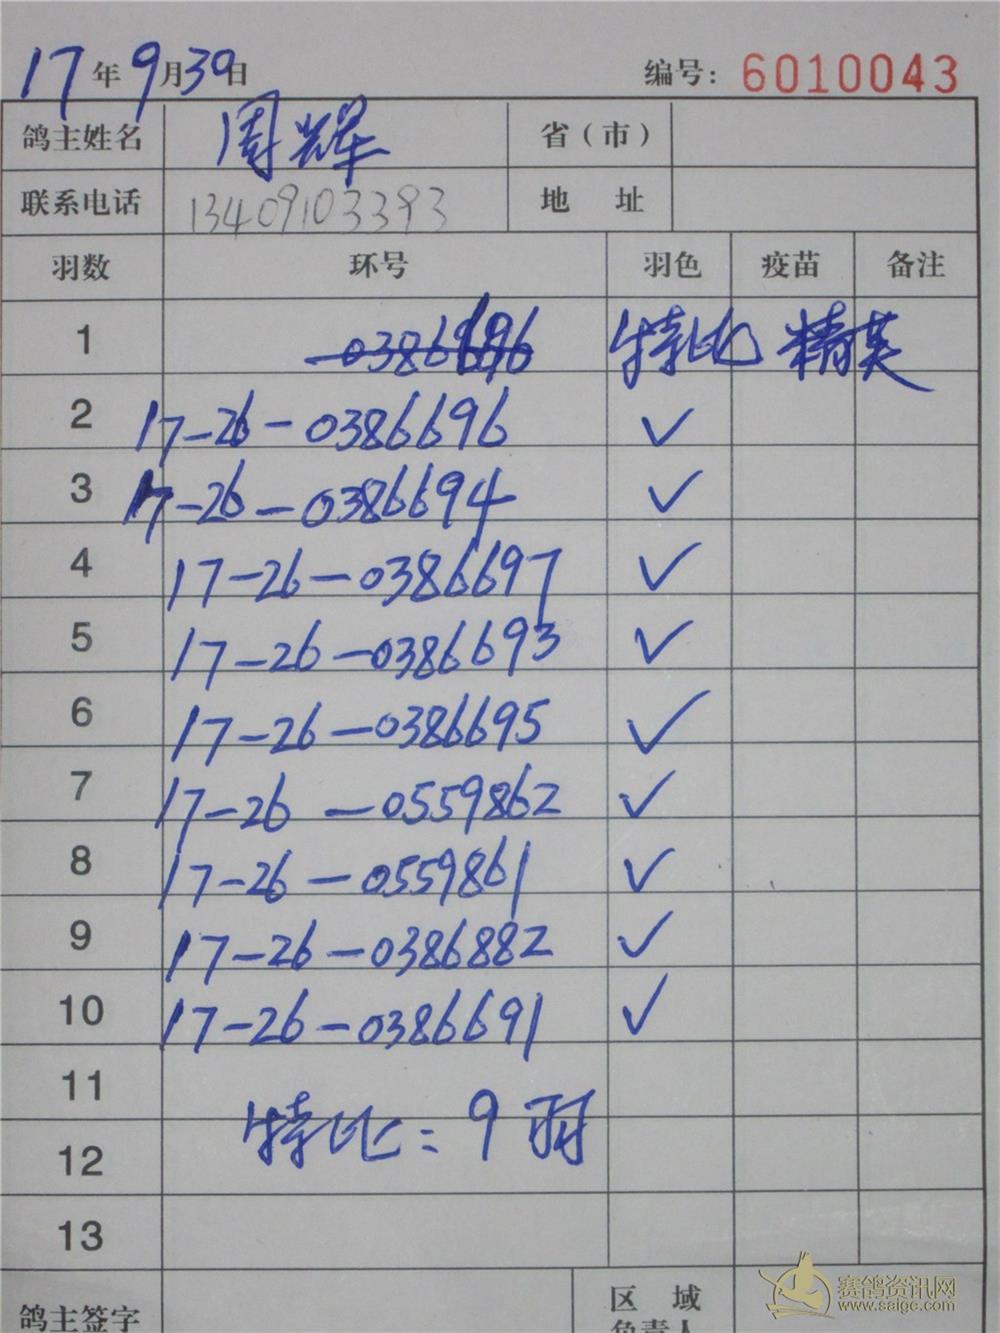 17年9月30日 编号：6010043
鸽主姓名 周辉 省（市）
联系电话 13409103393 地 址
羽数 环号 羽色 疫苗 备注
1 特比 精英
2 17-26-0386696 ✓
3 17-26-0386694 ✓
4 17-26-0386697 ✓
5 17-26-0386693 ✓
6 17-26-0386695 ✓
7 17-26-0559862 ✓
8 17-26-0559861 ✓
9 17-26-0386882 ✓
10 17-26-0386691 ✓
11
特比：9羽
12
13
鸽主签字 区 域
负责人
赛鸽资讯网
www.saigc.com